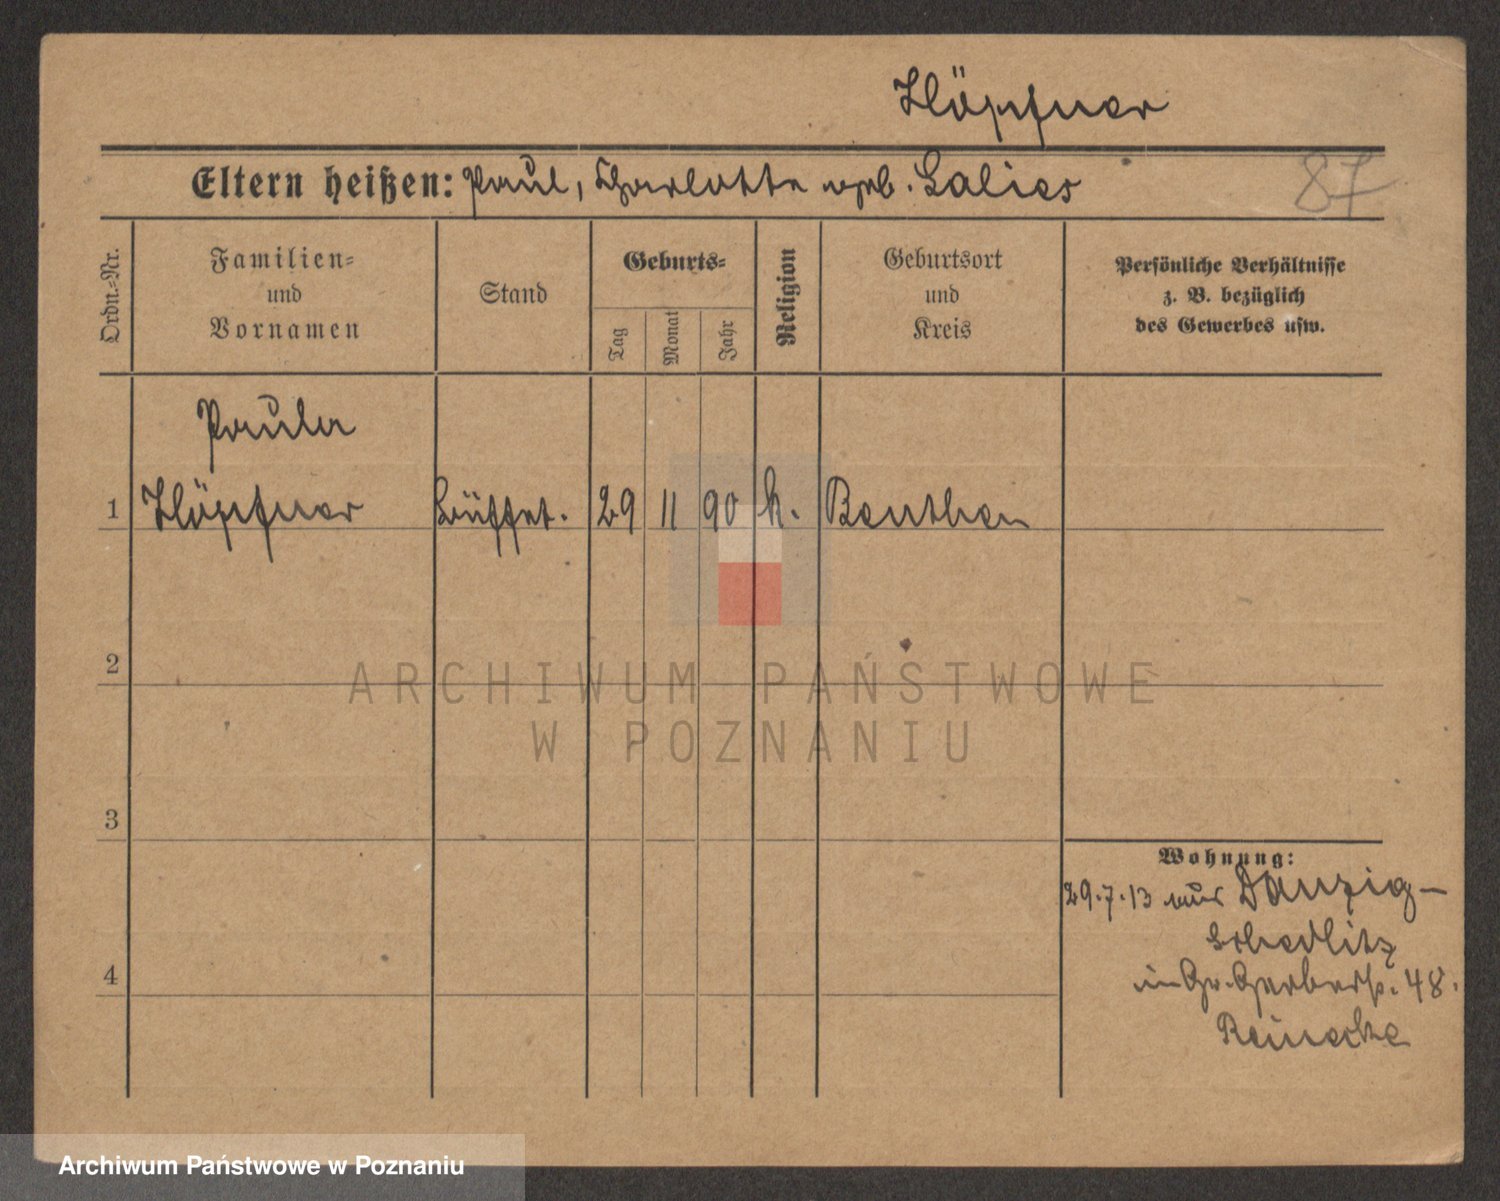 Höpfner
Eltern heißen: Paul, Charlotte geb. Salies
87
Ordn.-Nr.
Familien-
und
Vornamen
Stand
Geburts-
Tag
Monat
Jahr
Religion
Geburtsort
und
Kreis
Persönliche Verhältnisse
z. B. bezüglich
des Gewerbes usw.
Paula
1 Höpfner Büffet. 29 11 90 k. Beuthen
2
ARCHIWUM PAŃSTWOWE
W POZNANIU
3
Wohnung:
29.7.13 aus Danzig-
Schedlitz
in Gr. Gerberstr. 48.
Reinecke
4
Archiwum Państwowe w Poznaniu